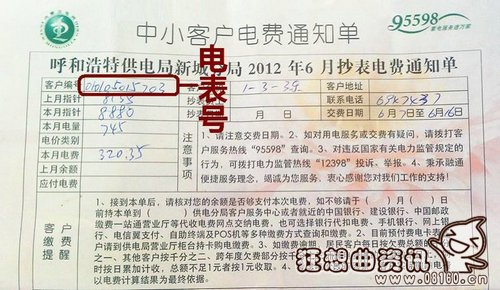 中小客户电费通知单
95598
呼和浩特供电局新城分局 2012 年 6 月抄表电费通知单
客户编号 010105015703 1-3-39 客户地址
上月指针 8135 抄表 联系电话
本月指针 8880 抄表 交费日期 6月7日至6月16日
本月电量 745
电价类别
本月电费 320.35
上月余额
应付电费
电表号
注意事项
1、请注意交费日期。2、如对用电服务或交费有疑问，请拨打客
户服务热线“95598”查询。3、对违反国家有关电力监管规定
的行为，可拨打电力监管热线“12398”投诉、举报。4、秉承融通
便捷服务理念，竭诚为您服务，衷心感谢您对我们工作的支持！
客户缴费提醒
1、接到本单后，请核对您的余额是否够支付本次电费，如不够请于（ ）月（ ）日
前持本单到（ ）供电分局客户服务中心或者就近的中国银行、建设银行、中国邮政
缴费一站通营业厅等代收电费网点交纳电费，也可选择银行代扣电费、手机银行、网上银
行、电信翼支付、自助终端及POS机等多种缴费方式查询和缴费。2、目前预付费电卡表
户请到供电局营业厅柜台持卡购电缴费。3、如缴费逾期，居民客户每日按欠费总额的
之一、其他客户按千分之二、跨年度欠费部分按千分之三
时按日累加计收，总额不足1元者按1元收取。4、
以电费计算结果为最终依据。
狂想曲资讯
www.08160.cn